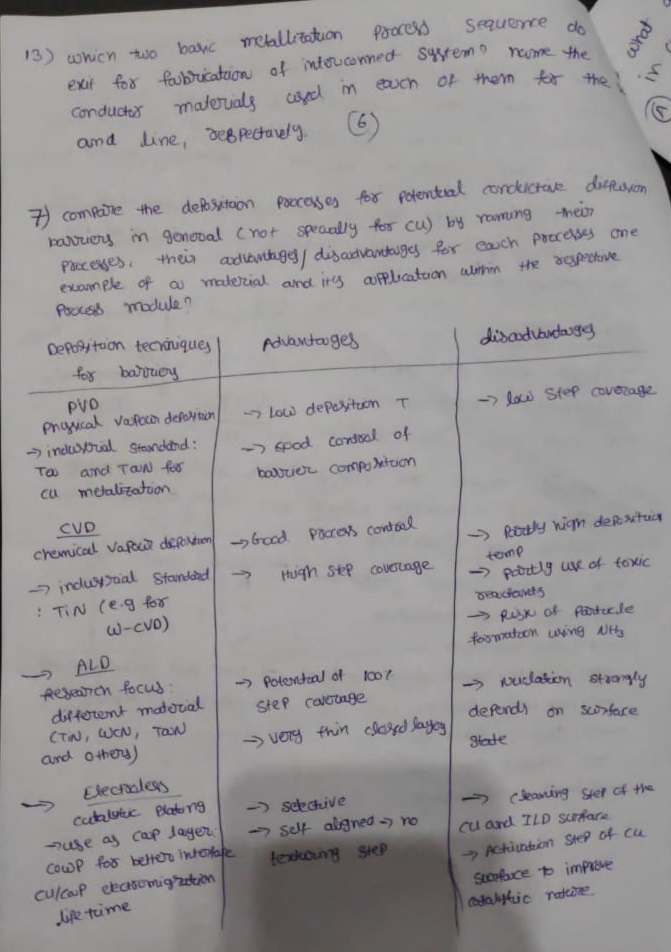 13) which two basic metallization process sequence do
exit for fabrication of interconnect system? name the
conductor materials used in each of them for the
and line, respectavely. (6)
what
in
(5)
7) compare the deposition processes for potential conductive diffusion
barriers in general (not specially for cu) by naming their
processes, their advantages/disadvantages for each processes one
example of a material and its application within the respective
process module?
Deposition techniques
for barriers
Advantages
disadvantages
PVD
Physical vapour deposition
→ industrial standard:
Ta and TaN for
cu metalization
→ Low deposition T
→ Good control of
barrier composition
→ low step coverage
CVD
chemical vapour deposition
→ industrial standard
: TiN (e.g for
W-CVD)
→ Good process control
→ High step coverage
→ Partly high deposition
temp
→ partly use of toxic
reactants
→ Risk of particle
formation using NH3
→ ALD
Research focus:
different material
(TiN, WCN, TaN
and others)
→ Potential of 100%
step coverage
→ very thin closed layers
→ Nuclation strongly
depends on surface
state
→ Electroless
catalytic plating
→ use as cap layer
COWP for better interface
cu/cap electromigration
life time
→ selective
→ self aligned → no
step
→ cleaning step of the
cu and ILD surface
→ Activation step of cu
surface to improve
catalytic nature